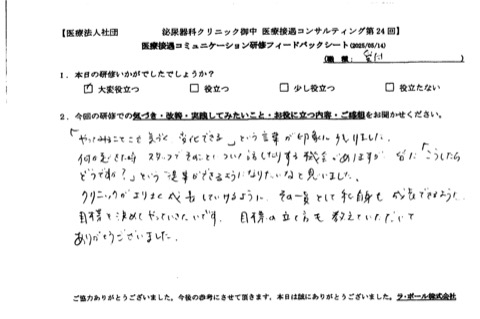 【医療法人社団　　　泌尿器科クリニック御中 医療接遇コンサルティング第24回】
医療接遇コミュニケーション研修フィードバックシート(2025/05/14)
(職種: 受付)
1. 本日の研修いかがでしたでしょうか?
☑ 大変役立つ　□ 役立つ　□ 少し役立つ　□ 役立たない
2. 今回の研修での気づき・改善・実践してみたいこと・お役に立つ内容・ご感想をお聞かせください。
「やってみることこそ気づく 変化できる」という言葉が印象にのこりました。
何か起きた時 スタッフでそのことについて話したりする機会がありますが、ただ「こうしたら
どうですか?」という提案ができるようになりたいなと思いました。
クリニックがよりよく成長していけるように、その一員として私自身も成長できるよう、
目標を決めてやっていきたいです。 目標の立て方も教えていただいて
ありがとうございました。
ご協力ありがとうございました。今後の参考にさせて頂きます。本日は誠にありがとうございました。ラ・ポール株式会社